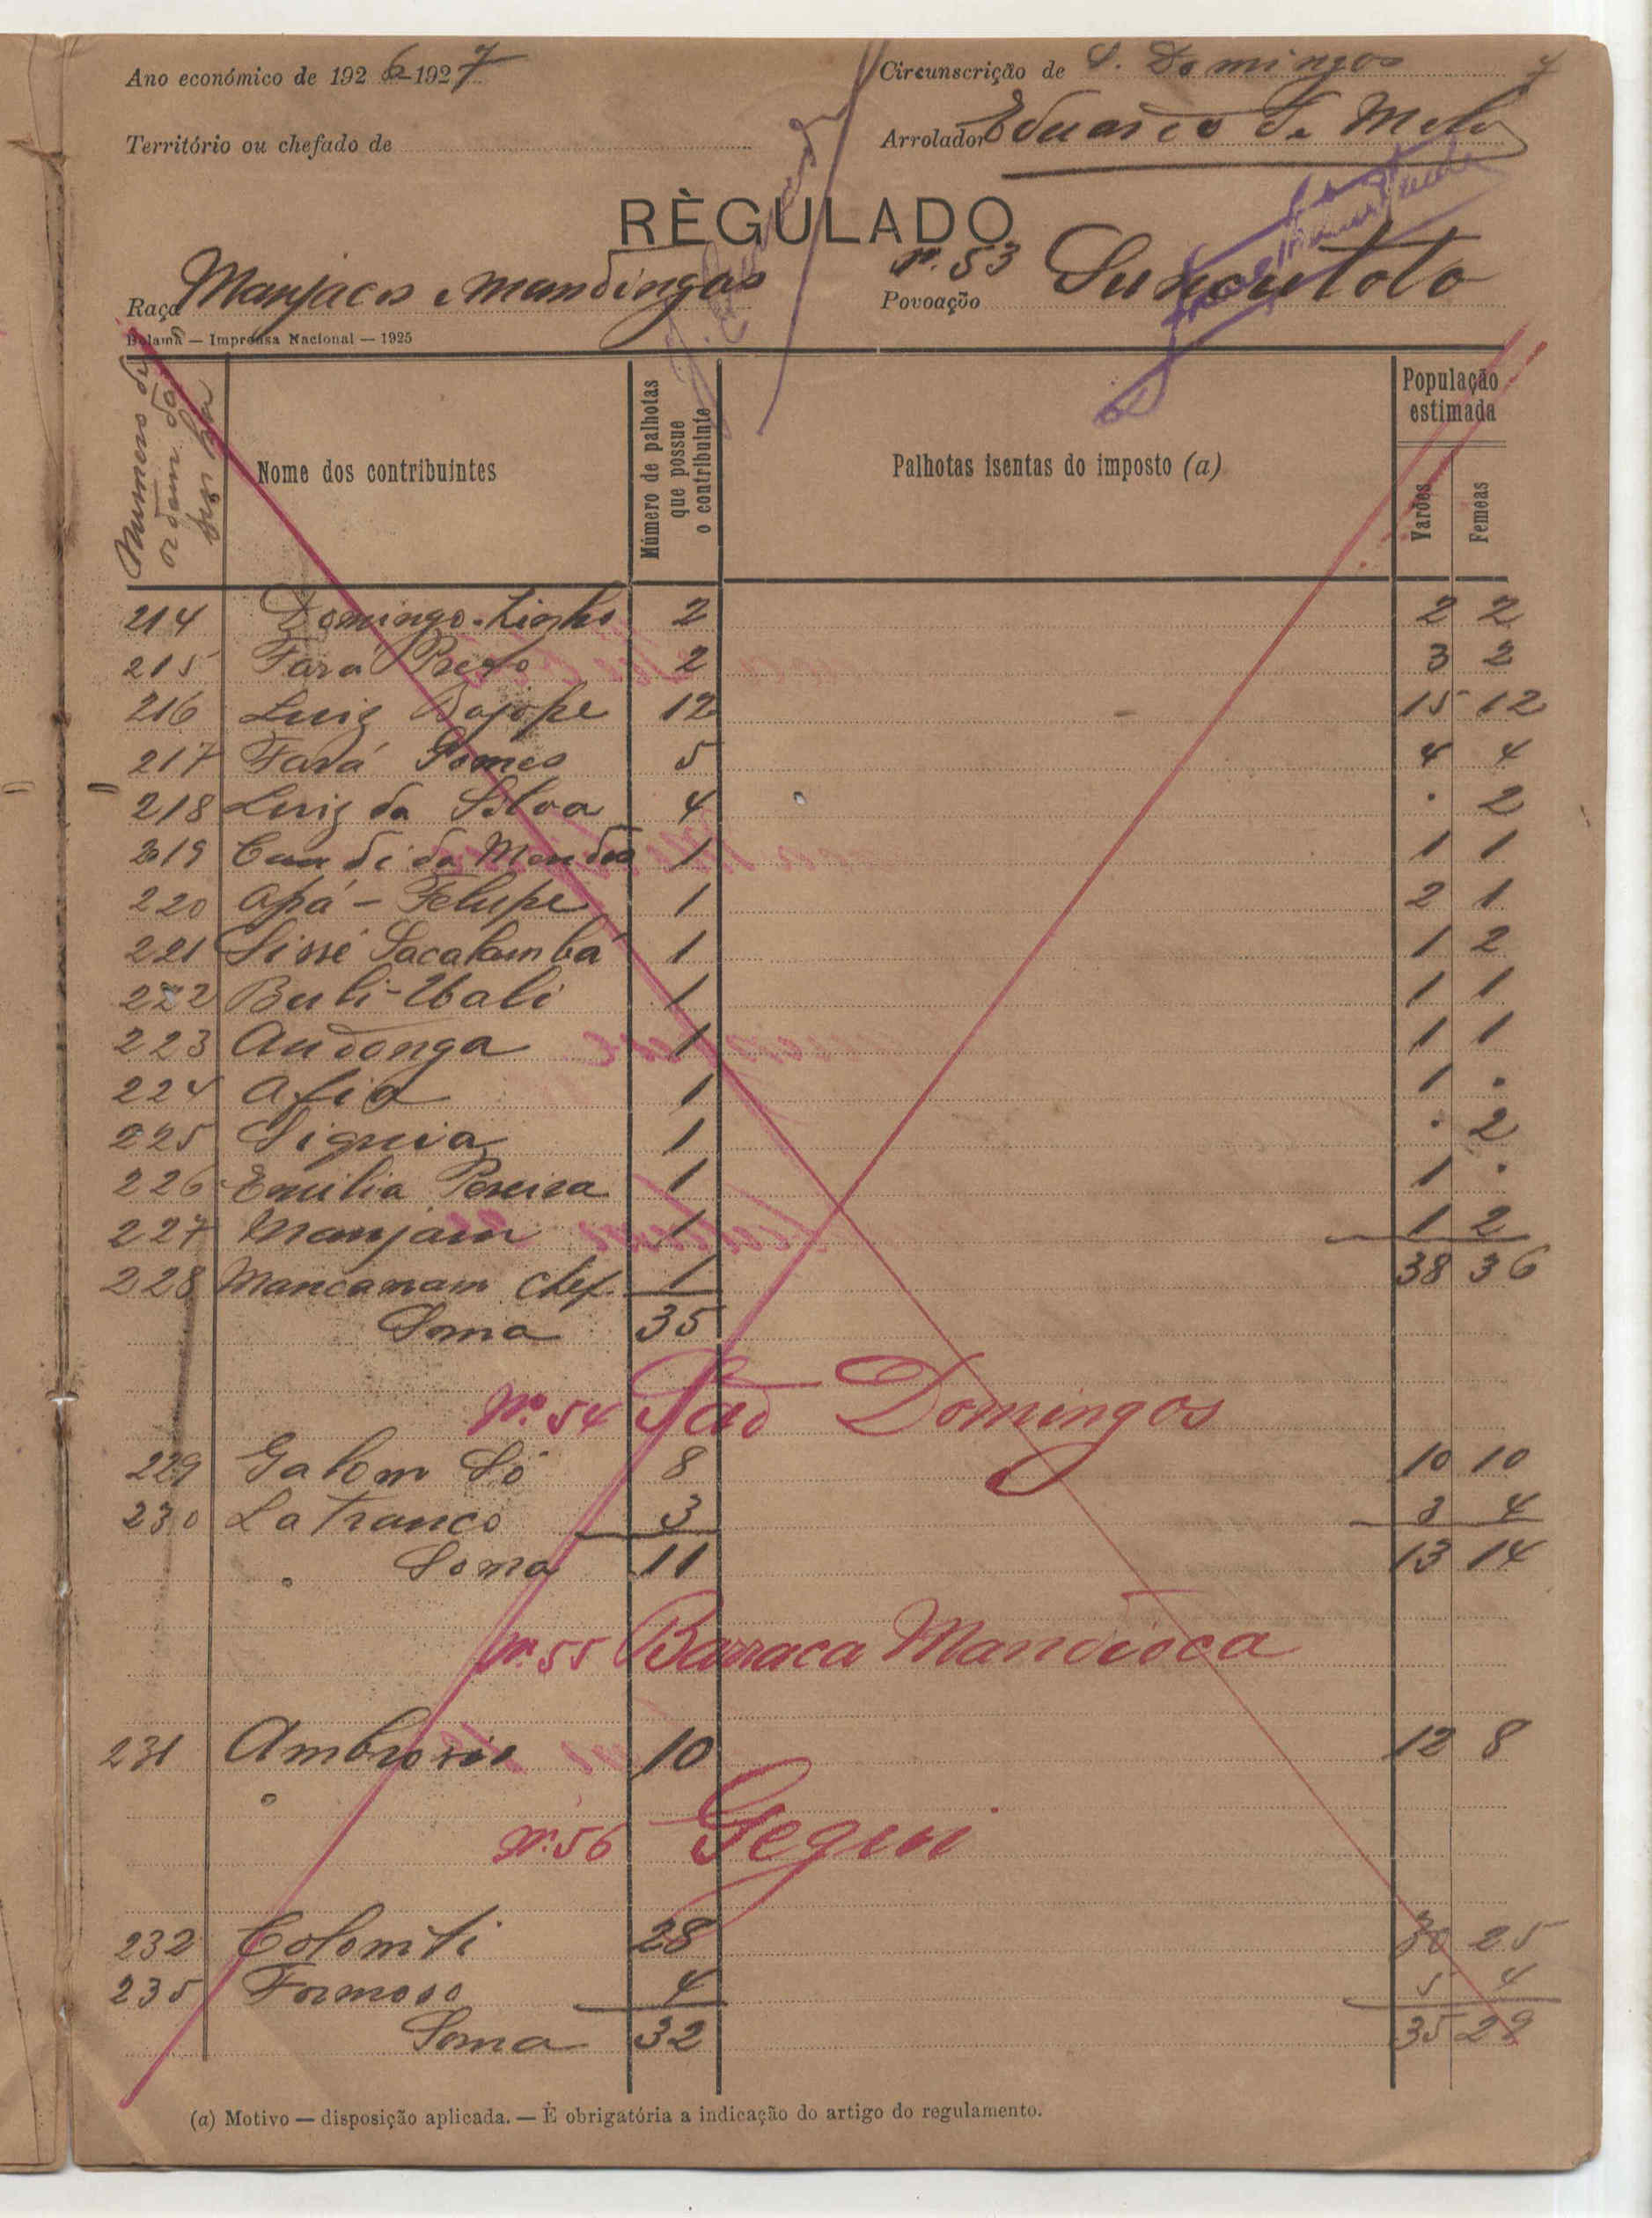 Ano económico de 1926-1927
Circunscrição de S. Domingos
Território ou chefado de
Arrolador Eduardo de Melo
RÈGULADO
Raça Manjacos e mandingas
Nº 53
Povoação Suncutoto
Bolama — Imprensa Nacional — 1925
Numero de ordem da
Nome dos contribuintes
Múmero de palhotas que possue o contribuinte
Palhotas isentas do imposto (a)
População estimada
Varões
Femeas
214 Domingo 2 2 2
215 Fará Preto 2 3 2
216 Luiz Bajope 12 15 12
217 Fará Gomes 5 4 4
218 Luiz da Silva 4 . 2
219 Candida Mendes 1 1 1
220 Apá - Felupe 1 2 1
221 Sissé Sacalamba 1 1 2
222 Buli-Ubali 1 1 1
223 Audonga 1 1 1
224 Afia 1 1 .
225 Signia 1 . 2
226 Emilia Pereira 1 1 .
227 Manjam 1 1 2
228 Mancanam Chef. 1 38 36
Soma 35
Nº 54 São Domingos
229 Galom Só 8 10 10
230 Lafranco 3 3 4
Soma 11 13 14
Nº 55 Barraca Mandioca
231 Ambrosio 10 12 8
Nº 56 Gegui
232 Colomti 28 30 25
235 Formoso 4 5 4
Soma 32 35 29
(a) Motivo — disposição aplicada. — É obrigatória a indicação do artigo do regulamento.